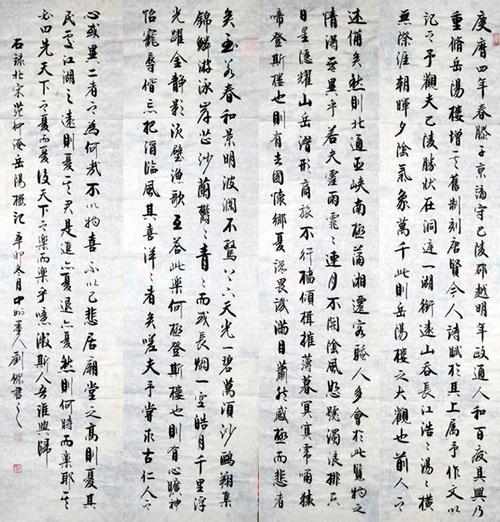 慶曆四年春滕子京謫守巴陵郡越明年政通人和百廢具興乃
重修岳陽樓增其舊制刻唐賢今人詩賦於其上屬予作文以
記之予觀夫巴陵勝狀在洞庭一湖銜遠山吞長江浩々湯々橫
無際涯朝暉夕陰氣象萬千此則岳陽樓之大觀也前人之
述備矣然則北通巫峽南極瀟湘遷客騷人多會於此覽物之
情得無異乎若夫霪雨霏々連月不開陰風怒號濁浪排空
日星隱耀山岳潛形商旅不行檣傾楫摧薄暮冥冥虎嘯猿
啼登斯樓也則有去國懷鄉憂讒畏譏滿目蕭然感極而悲者
矣至若春和景明波瀾不驚上下天光一碧萬頃沙鷗翔集
錦鱗游泳岸芷汀蘭鬱々青々而或長煙一空皓月千里浮
光躍金靜影沉璧漁歌互答此樂何極登斯樓也則有心曠神
怡寵辱偕忘把酒臨風其喜洋々者矣嗟夫予嘗求古仁人之
心或異二者之為何哉不以物喜不以己悲居廟堂之高則憂其
民處江湖之遠則憂其君是進亦憂退亦憂然則何時而樂耶其
必曰先天下之憂而憂後天下之樂而樂乎噫微斯人吾誰與歸
右錄北宋范仲淹岳陽樓記辛卯冬月中州人劉傑書